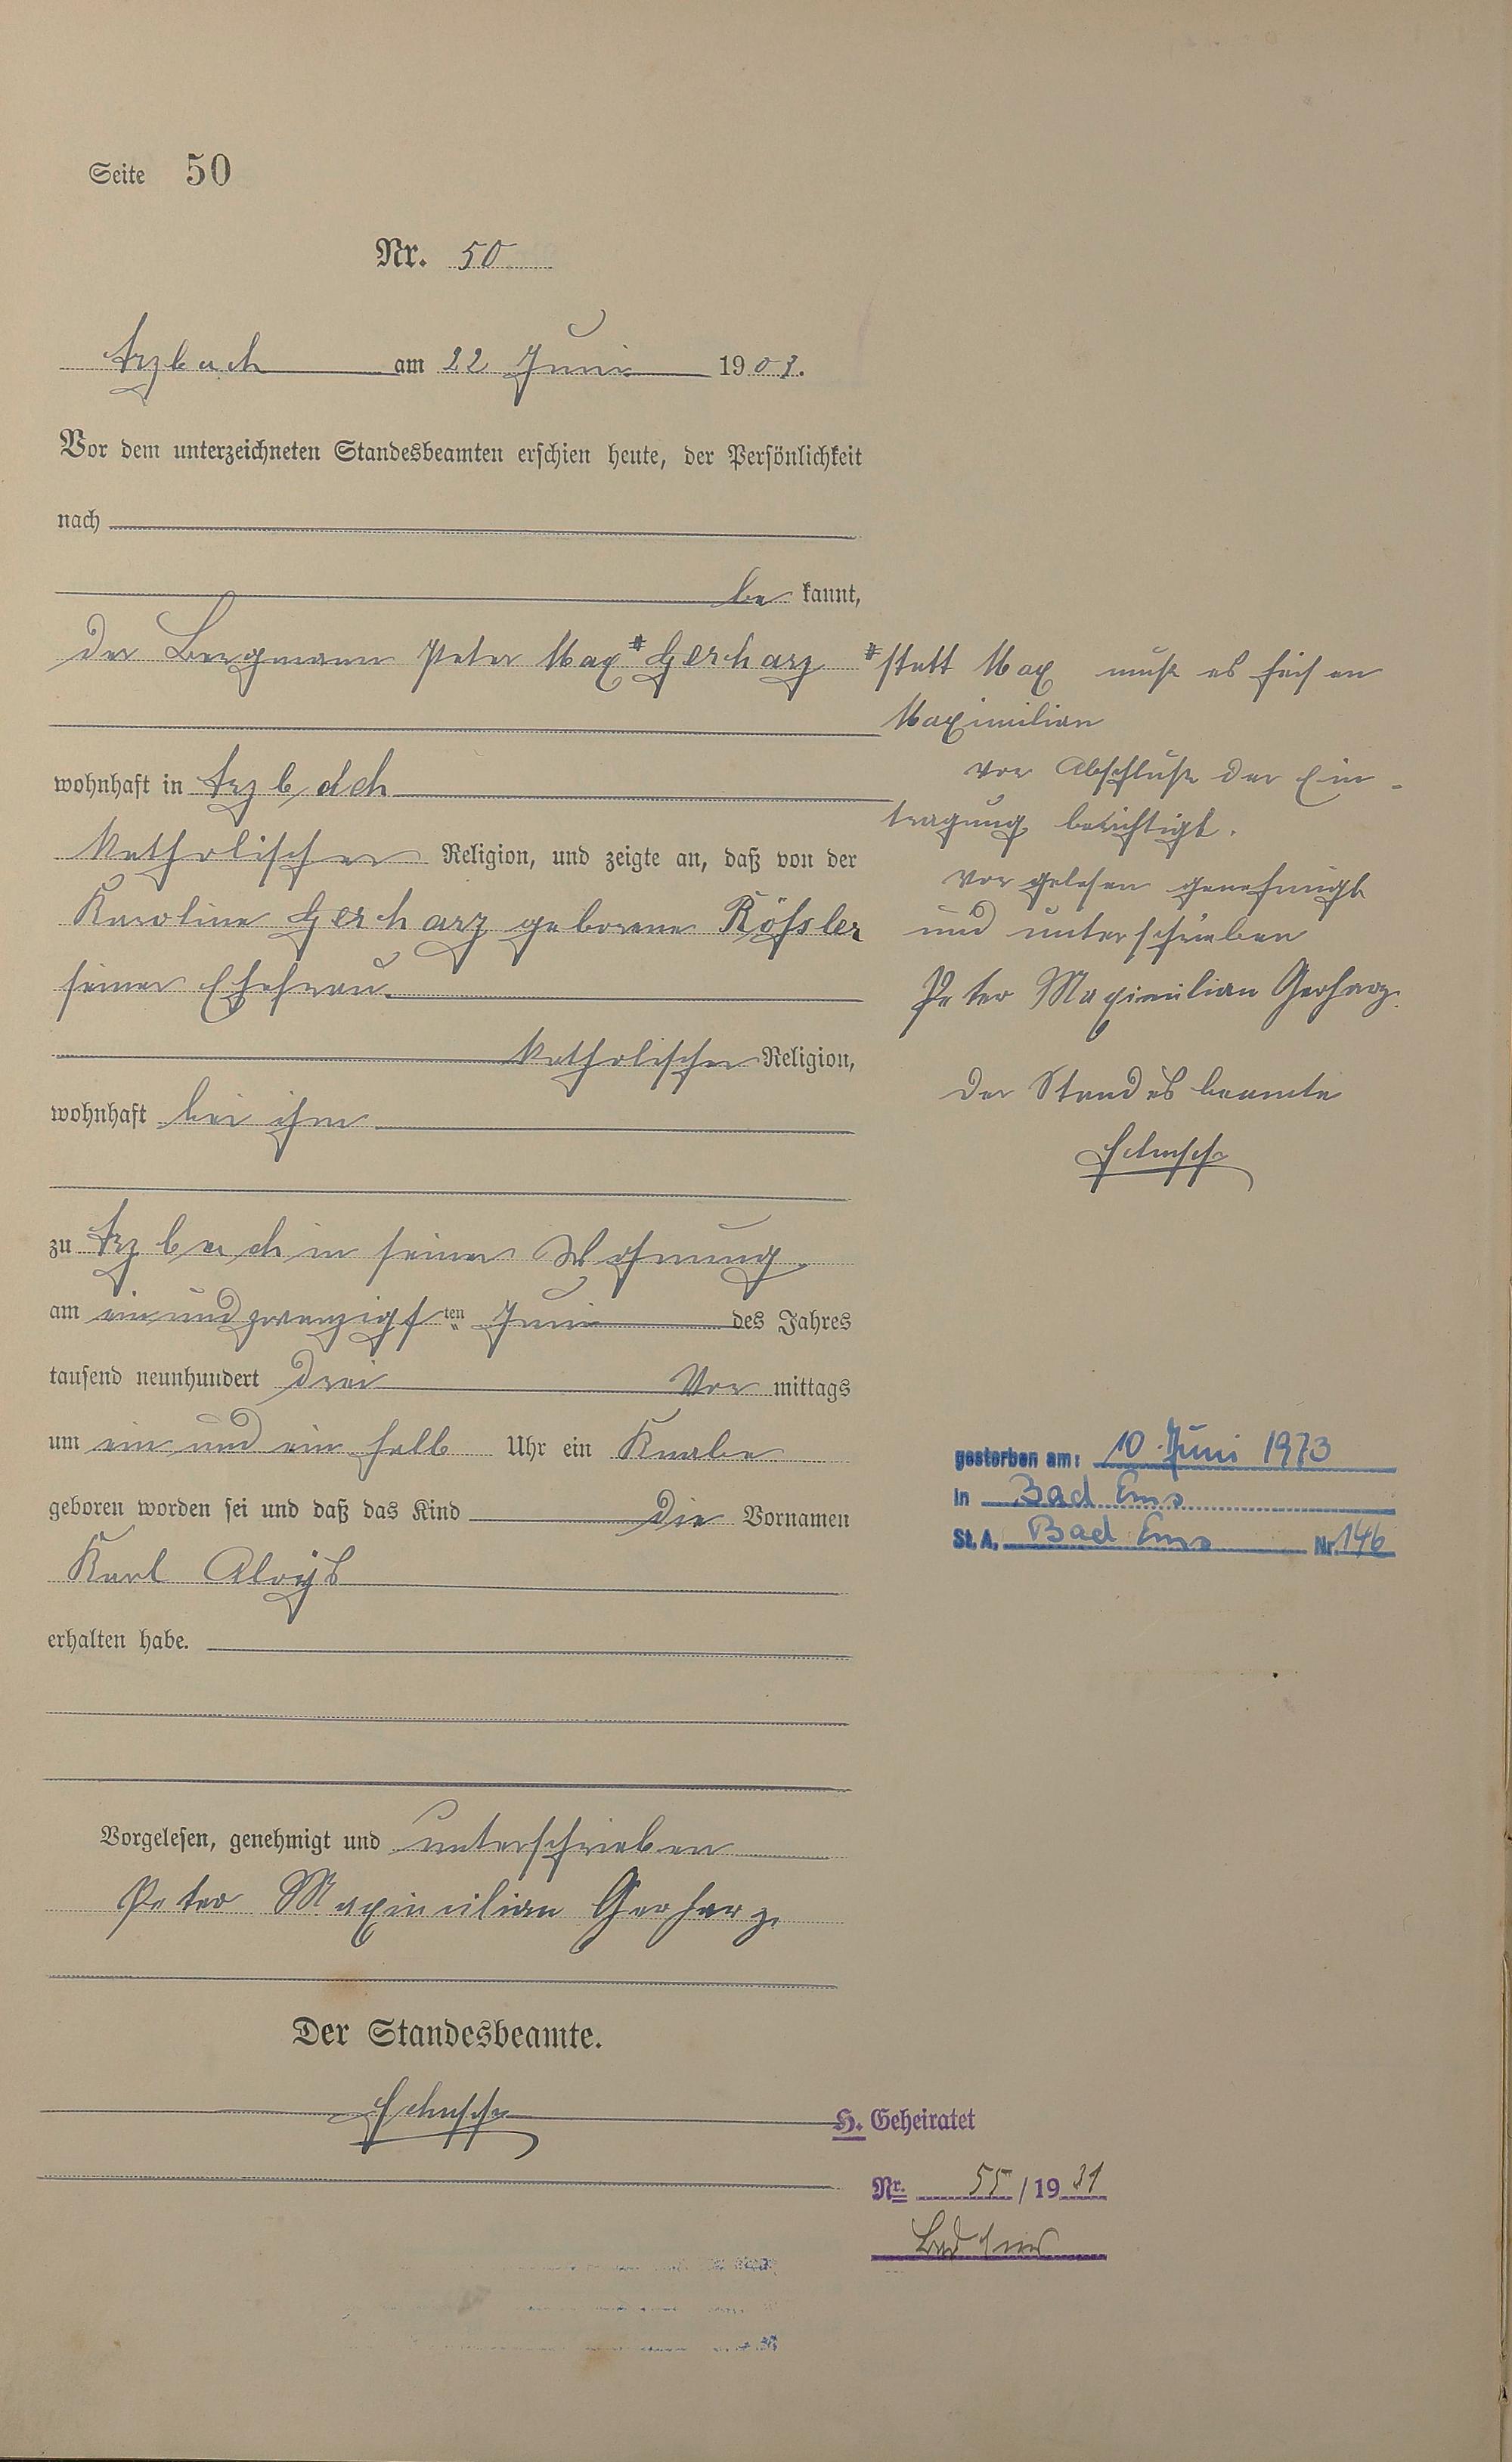 Seite 50
Nr. 50
Arzbach am 22 Juni 1903.
Vor dem unterzeichneten Standesbeamten erschien heute, der Persönlichkeit
nach
be kannt,
der Bergmann Peter Max # Gerharz
wohnhaft in Arzbach
katholischer Religion, und zeigte an, daß von der
Karoline Gerharz geborene Rößler
seiner Ehefrau
katholischer Religion,
wohnhaft bei ihm
zu Arzbach in seiner Wohnung
am einundzwanzigsten Juni des Jahres
tausend neunhundert drei Vor mittags
um ein und ein halb Uhr ein Knabe
geboren worden sei und daß das Kind die Vornamen
Karl Aloys
erhalten habe.
Vorgelesen, genehmigt und unterschrieben
Peter Maximilian Gerharz.
Der Standesbeamte.
# statt Max muß es heißen
Maximilian
vor Abschluß der Ein-
tragung berichtigt.
Vorgelesen genehmigt
und unterschrieben
Peter Maximilian Gerharz.
Der Standesbeamte
gestorben am: 10. Juni 1973
in Bad Ems
St. A. Bad Ems Nr. 146
H. Geheiratet
Nr. 55 / 1931
Bad Ems